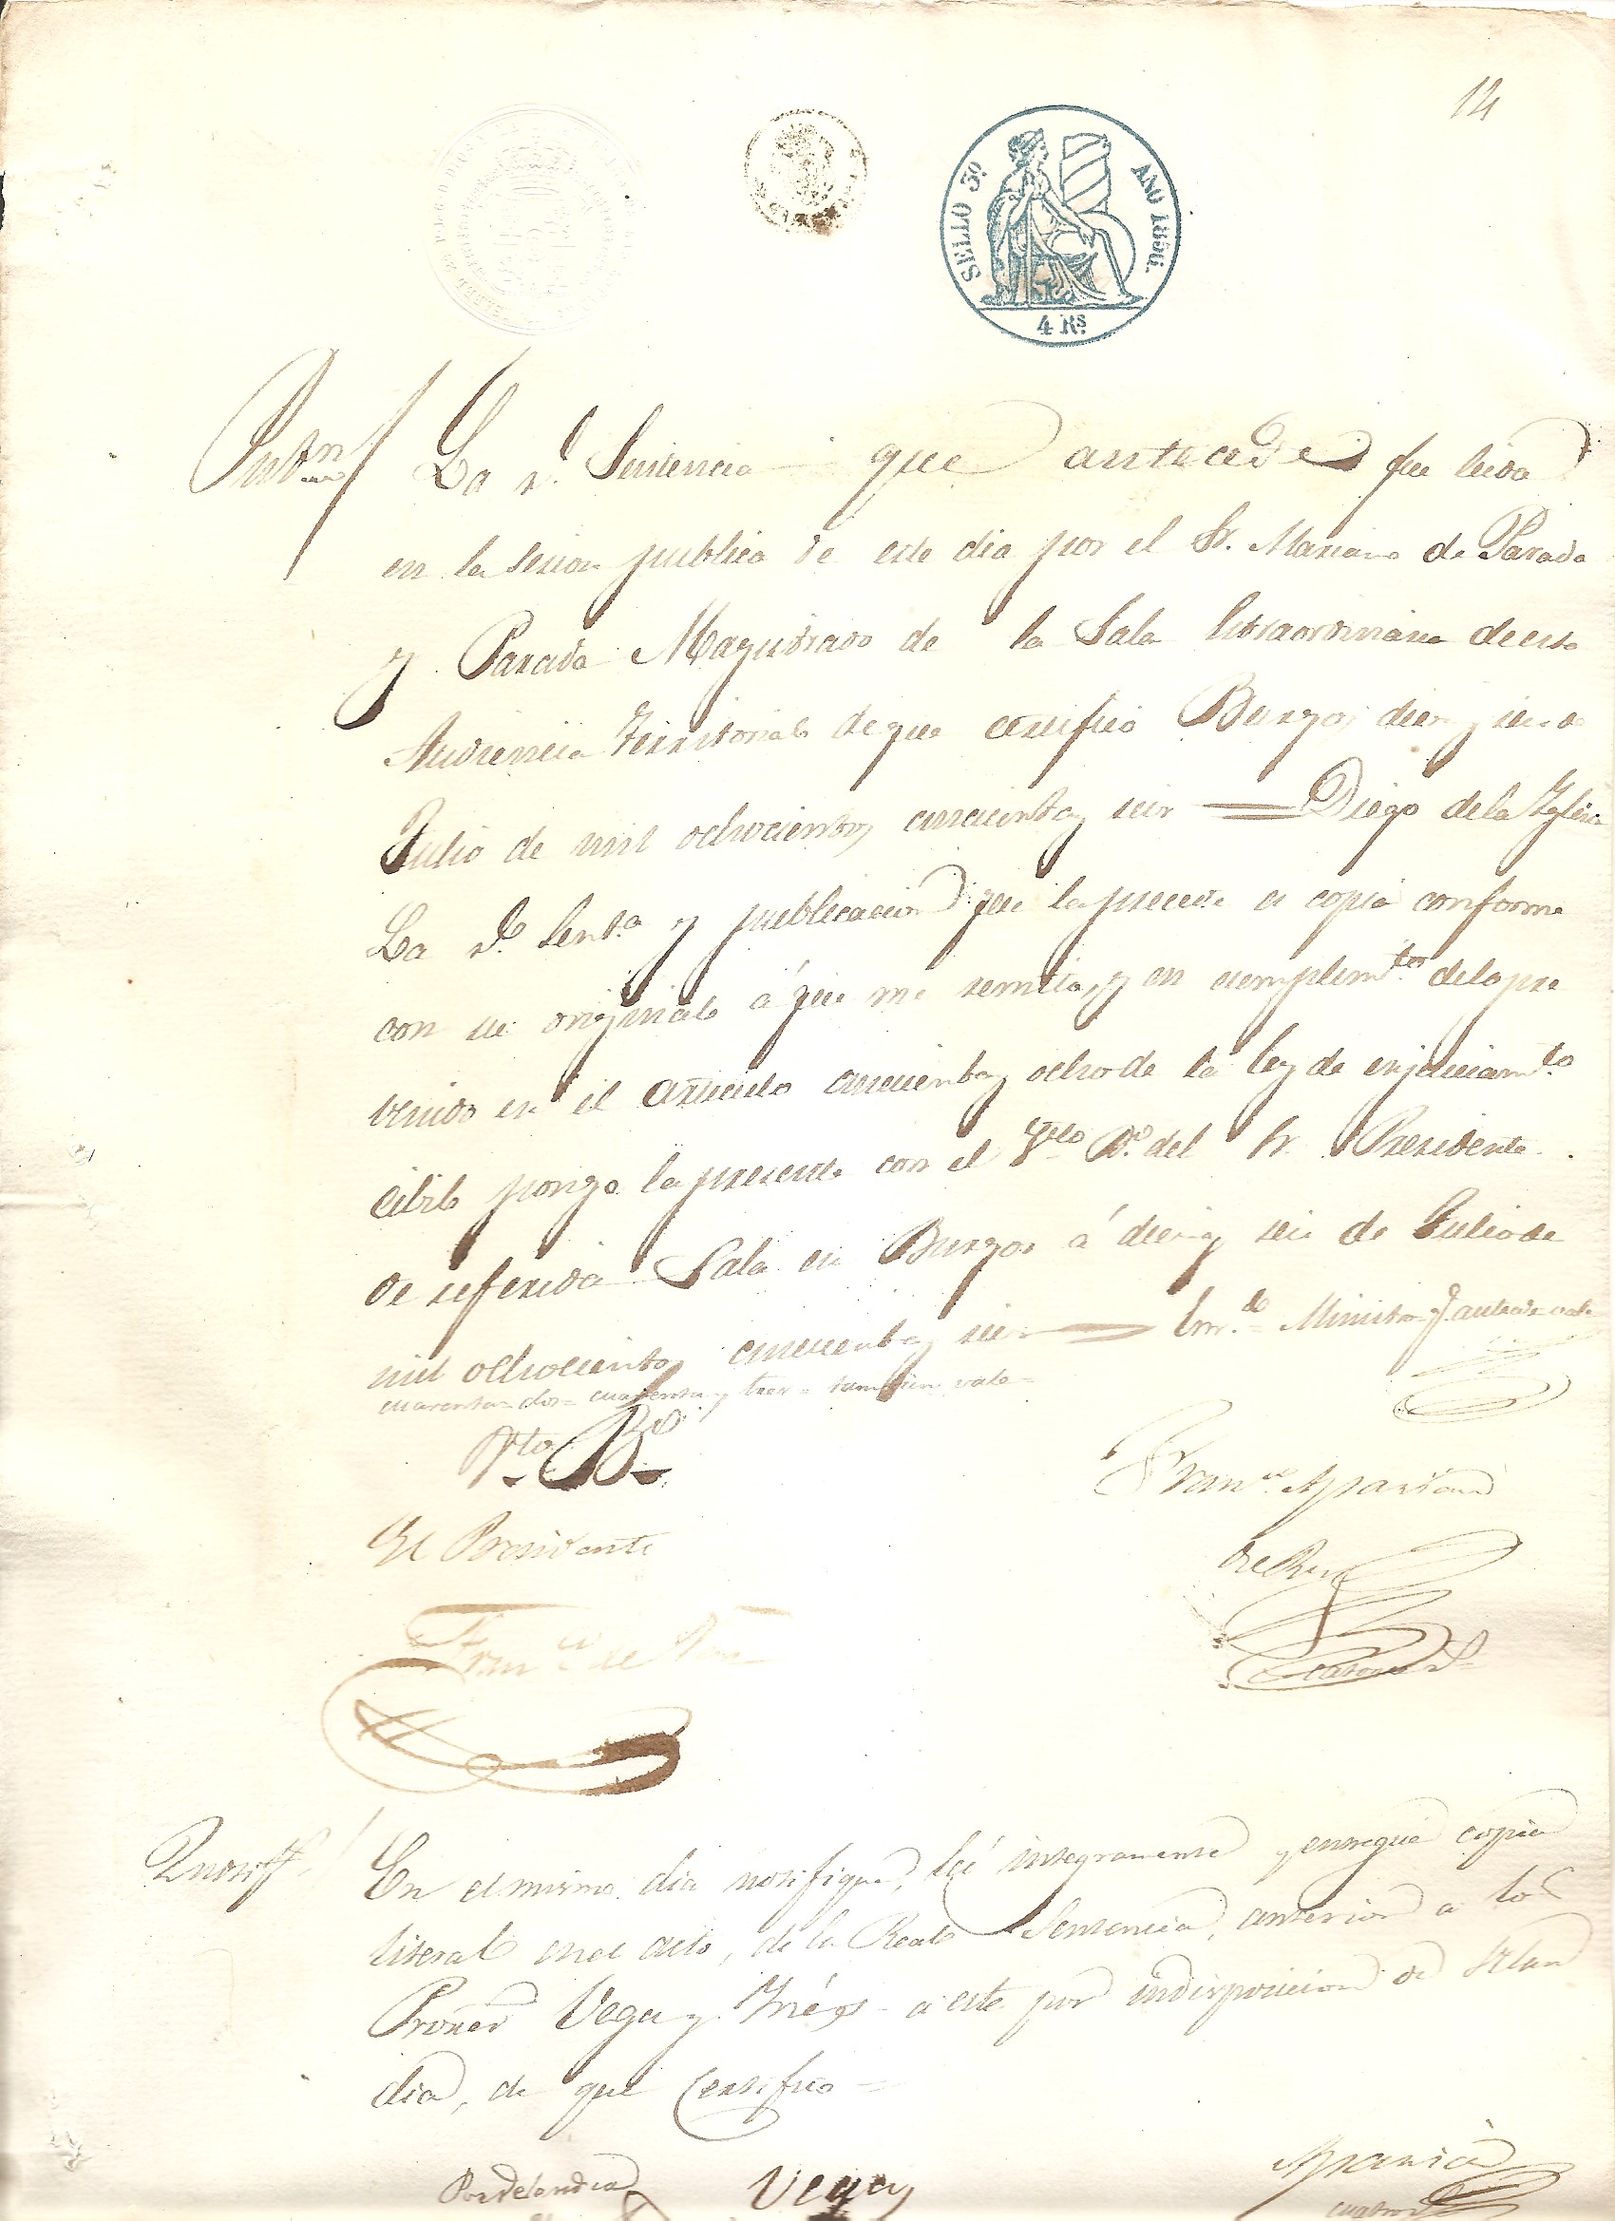 14
SELLO 3º AÑO 1856.
4 Rs
La Rl. Sentencia que antecede fue leida
en la sesion publica de este dia por el Sr. Mariano de Parada
y Parada Magistrado de la Sala Extraordinaria de esta
Audiencia Territorial de que certifico Burgos diez y seis de
Julio de mil ochocientos cincuenta y seis = Diego de la Yglesia
La Rl. Sent.a y publicacion que la precede es copia conforme
con su original á que me remito, y en cumplim.to de lo pre
venido en el articulo cincuenta y ocho de la ley de enjuiciam.to
cibil pongo la presente con el V.to B.o del Sr. Presidente
de referida Sala en Burgos á diez y seis de Julio de
mil ochocientos cincuenta y seis = Em.do = Ministro = J. autos = vale
cuarenta = dos = cuarenta y tres = tambien vale =
V.to B.o
El Presidente
Fran.co Aparicio
del Rey
Fran.co de
En el mismo dia notifiqué, leí integramente y entregué copia
literal en el acto, de la Real Sentencia, anterior a los
Proñes Vega y Inés = a este por indisposicion de
dia, de que certifico =
Vega
Aparicio